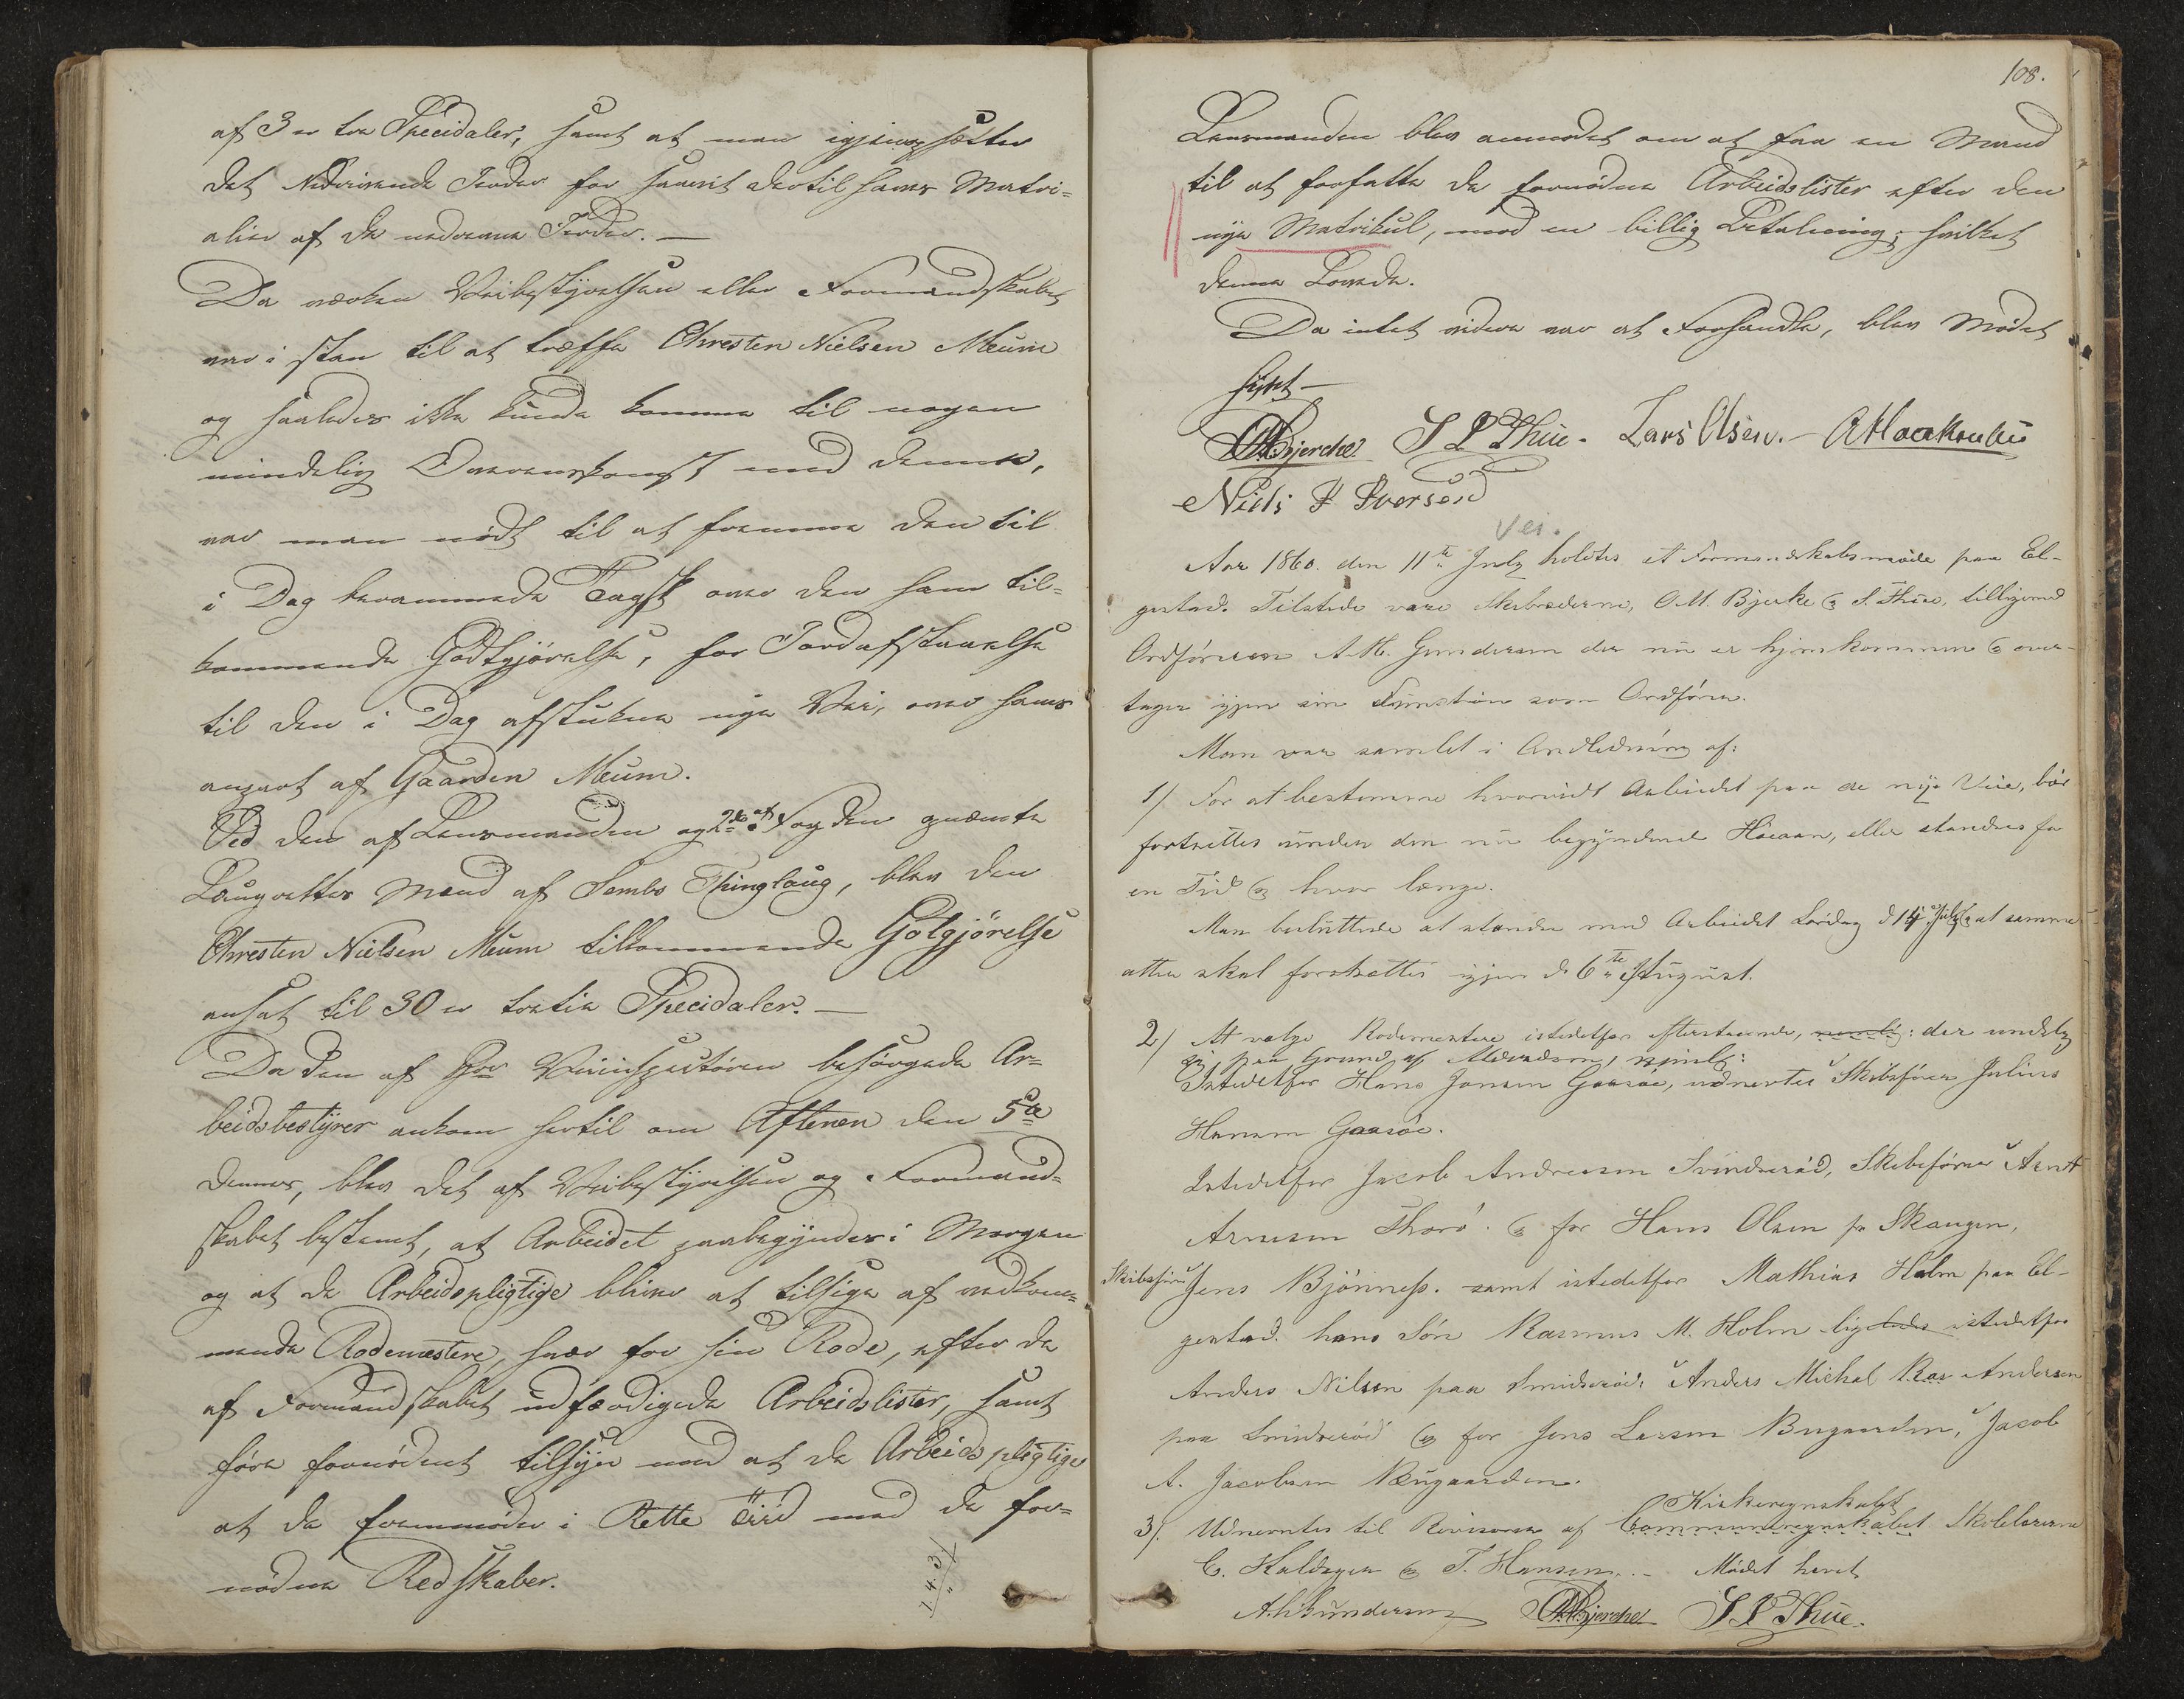 af 3 er tre Specidaler, samt at man igjenopsetter
det Nedrivende Jerder for saavit dertil haves Matri-
alier af de nedrevne Jerder. —
Da værken Veibestÿrelsen eller Formandskabet
var i stan til at træffe Chresten Nielsen Meum
og saaledes ikke kunde komme til nogen
mindelig Overenskomst med denne,
var man nødt til at fremme den til
i Dag berammede Tagst over den ham til-
kommende Godtgjørelse, for Jordafstaaelse
til den i Dag afstukne nye Vei, over hans
anpart af Gaarden Meum.
Ved den af Lensmanden og 2de af Fogden nævnte
Laugrettes Mænd af Sembs Thinglaug, blev den
Chresten Nielsen Meum tilkommende Gotgjörelse
ansat til 30 er tretie Specidaler. —
Da den af Hrr Veiinspectøren besørgede Ar-
beidsbestÿrer ankom hertil om Aftenen den 5te
dennes, blev det af Veibestÿrelsen og Formand-
skabet bestemt, at Arbeidet paabegÿndes i Morgen
og at de Arbeidspligtige bliver at tilsige af vedkom-
mende Rodemestere, hver for sin Rode, efter de
af Formandskabet udfærdigede Arbeidslister, samt
føre fornødent tilsÿn med at de Arbeidspligtige
at de fremmøder i Rette Tiid med de for-
nødne Redskaber.
108.
Lensmanden blev anmodet om at faa en Mand
til at forfatte de fornødne Arbeidslister efter den
nye Matrikul, mod en billig Betalning; hvilket
denne Lovede.
Da intet videre var at Forhandle, blev Mødet
hevet —
OMBjercke S L Thue. Lars Olsen. —
Niels F Iversen
Vei.
Aar 1860. den 11te July holdtes et Formandskabsmöde paa El-
gestad. Tilstede vare Skibsrederne, O M. Bjerke & S. Thue, tilligemed
Ordföreren A. H. Gundersen der nu er hjemkommen & over-
tager igjen sin Function som Ordförer.
Man var samlet i Andledning af:
1/ For at bestemme hvorvidt Arbeidet paa de nye Veie, bör
fortsettes under den nu begyndende Höeaan, eller standses for
en Tid & hvor længe.
Man besluttede at standse med Arbeidet Lördag d 14 July & at samme
atter skal forsættes igjen d. 6te August.
2/ At vælge Rodemestere istedetfor efterstaaende, nemlig: der undslog
sig paa Grund af Alderdom, nemlig:
Istedetfor Hans Jensen Gaasöe, udnevntes Skibsförer Julius
Hansen Gaasöe.
Istedetfor Jacob Andreasen Svinderöd, Skibsförer Arnt
Arnesen Thorö. & for Hans Olsen p. Skaugen,
Skibsförer Jens Bjönness. samt istedetfor Mathias Holm paa El-
gestad. hans Sön Rasmus M. Holm ligeledes istedetfor
Anders Nilsen paa Smidsröd: Anders Michal Ras Andersen
paa Smidsröd & for Jens Larsen Bugaarden, Jacob
A. Jacobsen Bugaarden.
Kirkeregnskabet
3/. Udnevntes til Revisorer af Communeregnskabet Skolelærerne
C. Haldsgen & T. Hansen. — Mödet hevet
A.H.Gundersen OMBjercke S L Thue.